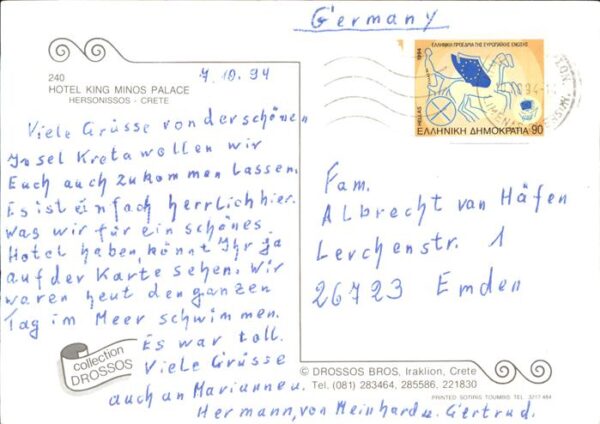 Germany
240
HOTEL KING MINOS PALACE
HERSONISSOS - CRETE
7.10.94
Viele Grüsse von der schönen
Insel Kreta wollen wir
Euch auch zukommen lassen.
Es ist einfach herrlich hier.
Was wir für ein schönes
Hotel haben, könnt Ihr ja
auf der Karte sehen. Wir
waren heut den ganzen
Tag im Meer schwimmen.
Es war toll.
Viele Grüsse
auch an Marianne u.
Hermann, von Meinhard u. Gertrud.
collection
DROSSOS
ΕΛΛΗΝΙΚΗ ΠΡΟΕΔΡΙΑ ΤΗΣ ΕΥΡΩΠΑΪΚΗΣ ΕΝΩΣΗΣ
1994
HELLAS
ΕΛΛΗΝΙΚΗ ΔΗΜΟΚΡΑΤΙΑ 90
Fam.
Albrecht van Häfen
Lerchenstr. 1
26723 Emden
© DROSSOS BROS, Iraklion, Crete
Tel. (081) 283464, 285586, 221830
PRINTED SOTIRIS TOUMBIS TEL. 3217 464